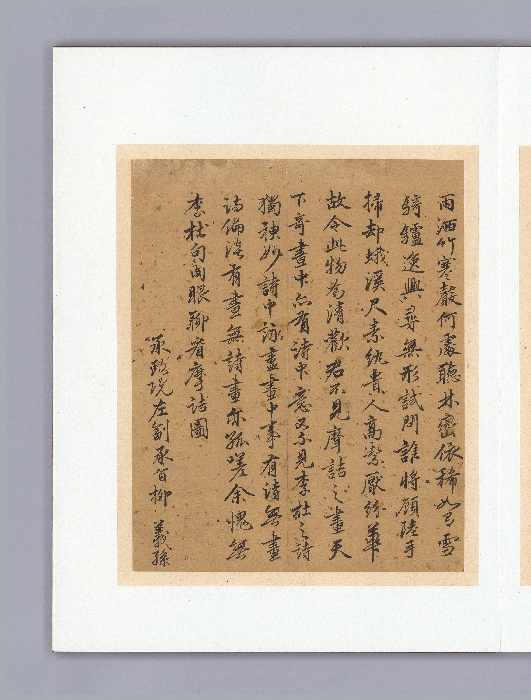 雨洒竹寒聲何處聽林巒依稀雪
騎驢逸興尋無形試問誰將顧陸手
掃却蛾溪尺素貴人高潔厭紛華
故令此物爲清歡君不見摩詰之畫天
下奇畫中亦有詩中意又不見李杜之詩
獨神妙詩中泳盡畫中事有詩無畫
詩偏淡有畫無詩畫亦孤嗟余愧無
李杜句閑眼聊看摩詰圖
承政院左副承旨柳 義孫